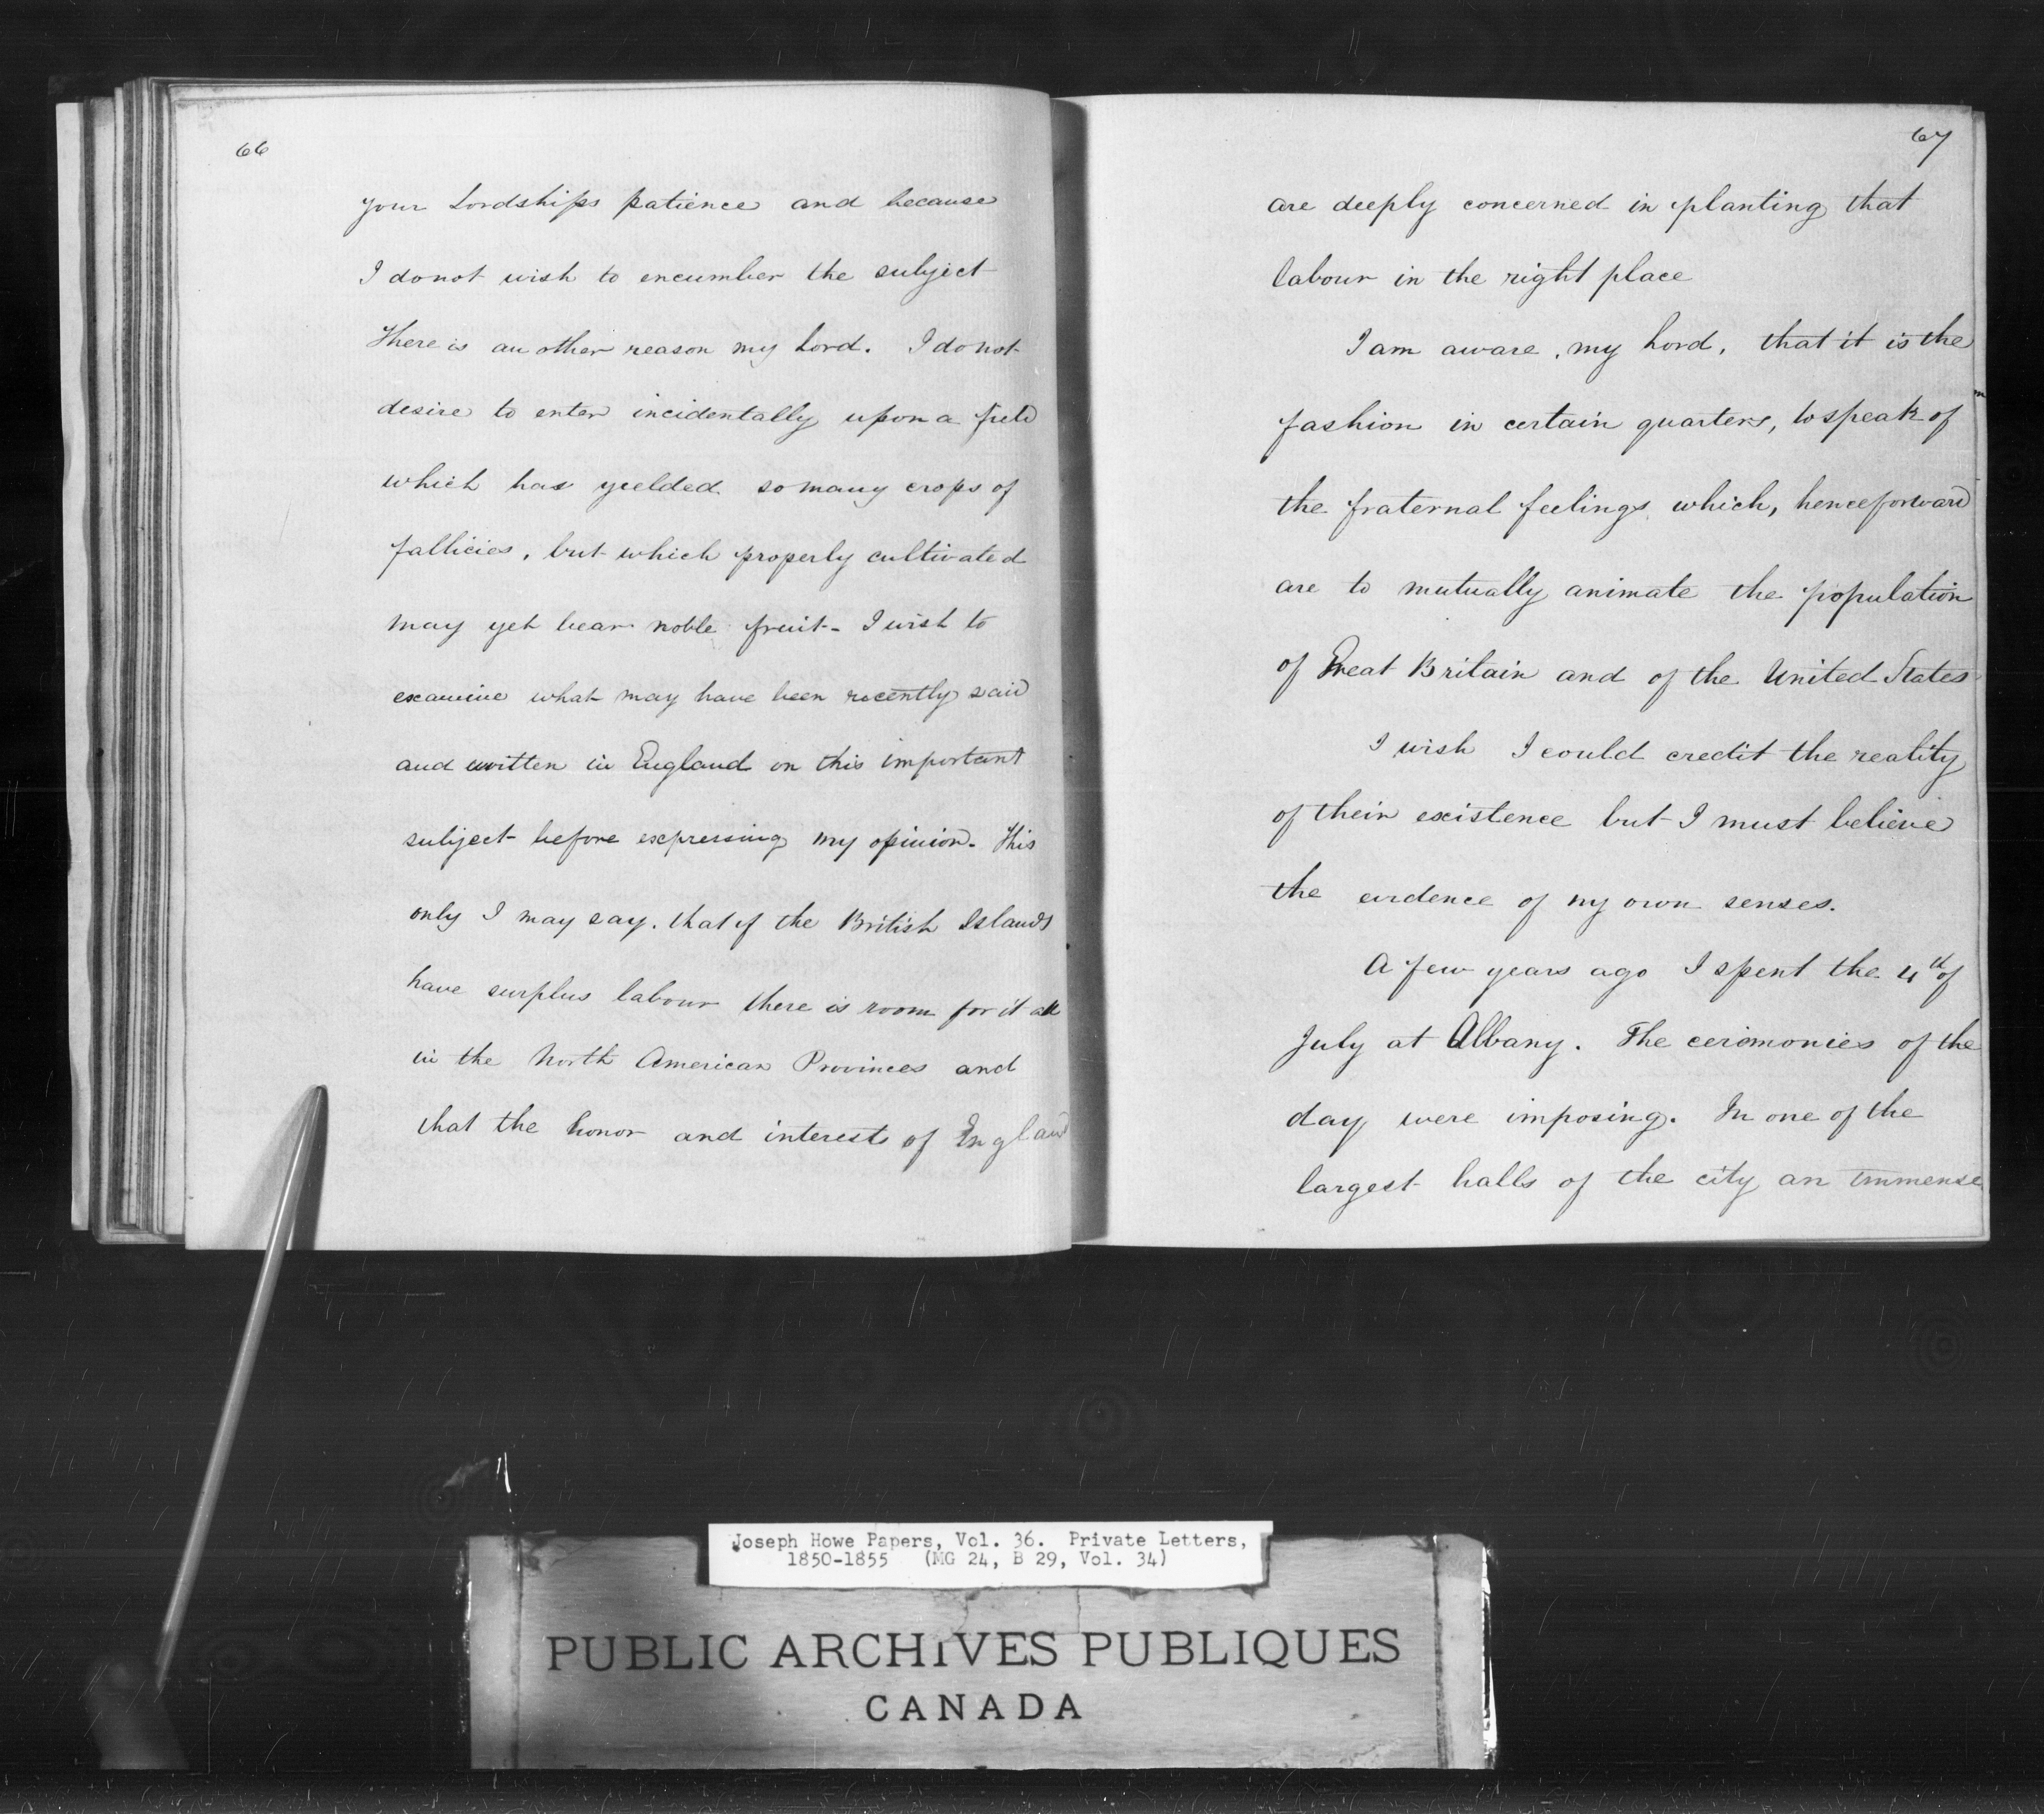 66
your Lordships patience and because
I do not wish to encumber the subject
There is an other reason my Lord. I do not
desire to enter incidentally upon a field
which has yeelded so many crops of
fallicies, but which properly cultivated
may yet bear noble fruit - I wish to
examine what may have been recently said
and written in England on this important
subject before expressing my opinion. This
only I may say. that if the British Islands
have surplus labour there is room for it all
in the North American Provinces and
that the honor and interests of England
67
are deeply concerned in planting that
labour in the right place
I am aware, my Lord, that it is the
fashion in certain quarters, to speak of
the fraternal feelings which, henceforward
are to mutually animate the population
of Great Britain and of the United States
I wish I could credit the reality
of their existence but I must believe
the evidence of my own senses.
A few years ago I spent the 4th of
July at Albany. The ceremonies of the
day were imposing. In one of the
largest halls of the city an immense
Joseph Howe Papers, Vol. 36. Private Letters,
1850-1855 (MG 24, B 29, Vol. 34)
PUBLIC ARCHIVES PUBLIQUES
CANADA